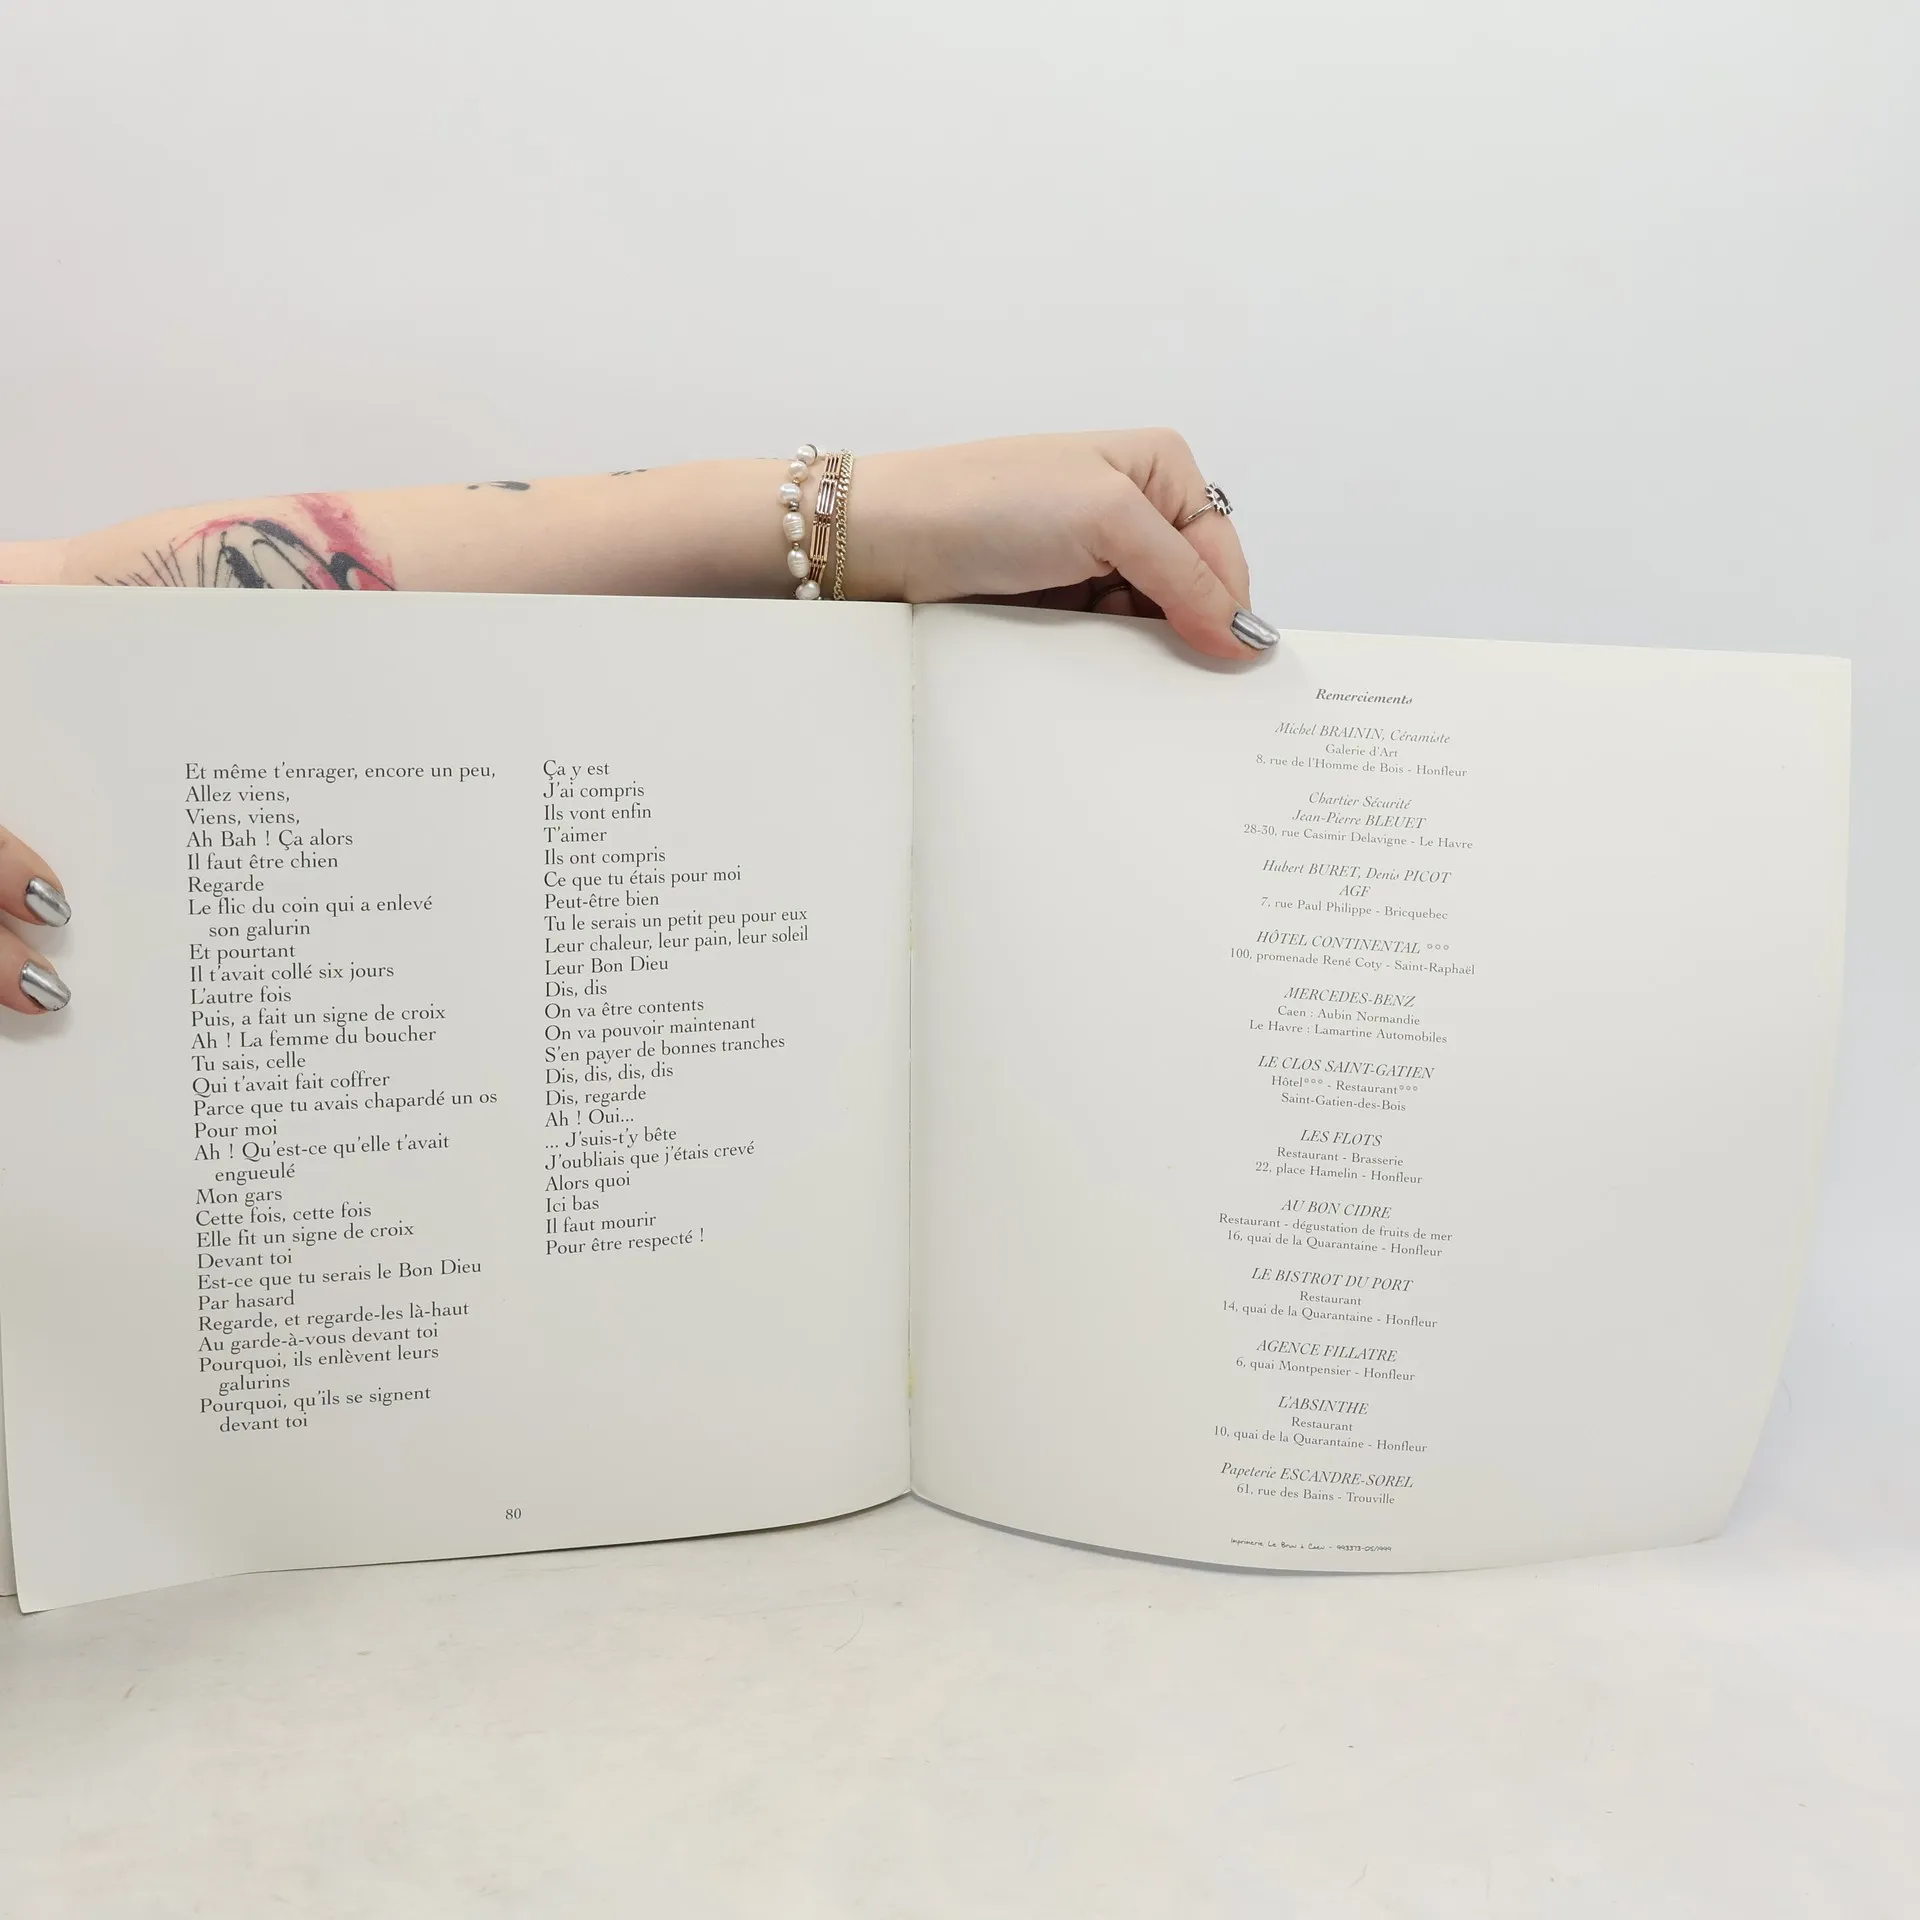 Et même t'enrager, encore un peu,
Allez viens,
Viens, viens,
Ah Bah ! Ça alors
Il faut être chien
Regarde
Le flic du coin qui a enlevé
son galurin
Et pourtant
Il t'avait collé six jours
L'autre fois
Puis, a fait un signe de croix
Ah ! La femme du boucher
Tu sais, celle
Qui t'avait fait coffrer
Parce que tu avais chapardé un os
Pour moi
Ah ! Qu'est-ce qu'elle t'avait
engueulé
Mon gars
Cette fois, cette fois
Elle fit un signe de croix
Devant toi
Est-ce que tu serais le Bon Dieu
Par hasard
Regarde, et regarde-les là-haut
Au garde-à-vous devant toi
Pourquoi, ils enlèvent leurs
galurins
Pourquoi, qu'ils se signent
devant toi
Ça y est
J'ai compris
Ils vont enfin
T'aimer
Ils ont compris
Ce que tu étais pour moi
Peut-être bien
Tu le serais un petit peu pour eux
Leur chaleur, leur pain, leur soleil
Leur Bon Dieu
Dis, dis
On va être contents
On va pouvoir maintenant
S'en payer de bonnes tranches
Dis, dis, dis, dis
Dis, regarde
Ah ! Oui...
... J'suis-t'y bête
J'oubliais que j'étais crevé
Alors quoi
Ici bas
Il faut mourir
Pour être respecté !
80
Remerciements
Michel BRAININ, Céramiste
Galerie d'Art
8, rue de l'Homme de Bois - Honfleur
Chartier Sécurité
Jean-Pierre BLEUET
28-30, rue Casimir Delavigne - Le Havre
Hubert BURET, Denis PICOT
AGF
7, rue Paul Philippe - Bricquebec
HÔTEL CONTINENTAL °°°
100, promenade René Coty - Saint-Raphaël
MERCEDES-BENZ
Caen : Aubin Normandie
Le Havre : Lamartine Automobiles
LE CLOS SAINT-GATIEN
Hôtel°°° - Restaurant°°°
Saint-Gatien-des-Bois
LES FLOTS
Restaurant - Brasserie
22, place Hamelin - Honfleur
AU BON CIDRE
Restaurant - dégustation de fruits de mer
16, quai de la Quarantaine - Honfleur
LE BISTROT DU PORT
Restaurant
14, quai de la Quarantaine - Honfleur
AGENCE FILLATRE
6, quai Montpensier - Honfleur
L'ABSINTHE
Restaurant
10, quai de la Quarantaine - Honfleur
Papeterie ESCANDRE-SOREL
61, rue des Bains - Trouville
Imprimerie Le Brun à Caen - 993373-05/1999